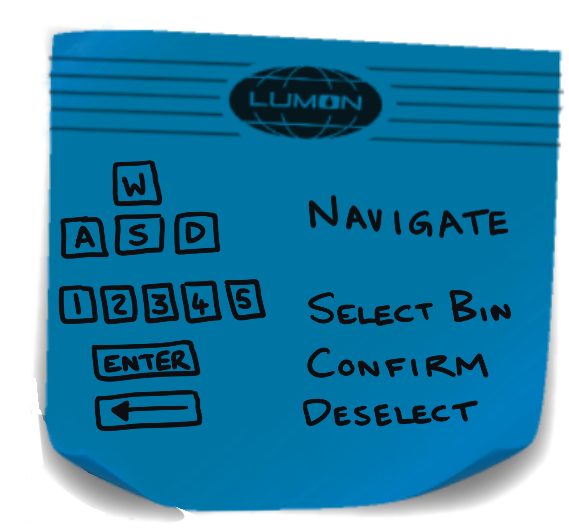 LUMON
W
A S D NAVIGATE
1 2 3 4 5 SELECT BIN
ENTER CONFIRM
← DESELECT